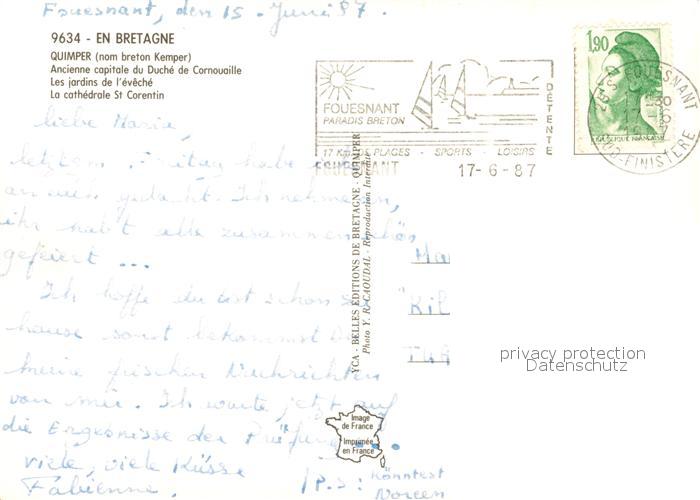 Fouesnant, den 15. Juni 87.
9634 - EN BRETAGNE
QUIMPER (nom breton Kemper)
Ancienne capitale du Duché de Cornouaille
Les jardins de l'évêché
La cathédrale St Corentin
FOUESNANT
PARADIS BRETON
17 KM DE PLAGES - SPORTS - LOISIRS
DÉTENTE
FOUESNANT
17-6-87
1,90
RÉPUBLIQUE FRANÇAISE
FOUESNANT
SUD-FINISTERE
liebe Maria,
letzten Freitag habe
an euch gedacht. Ich
ihr habt alle zusammen schön
gefeiert ...
Ich hoffe du bist schon zu
hause sonst bekommst Du
meine frischen Nachrichten
von mir. Ich warte jetzt auf
die Ergebnisse der
viele, viele Küsse
Fabienne.
P.S: könntest
Noreen
YCA - BELLES ÉDITIONS DE BRETAGNE - QUIMPER
Photo Y. R. CAOUDAL - Reproduction Interdite
Ma
"Kil
privacy protection
Datenschutz
Image
de France
Imprimée
en France